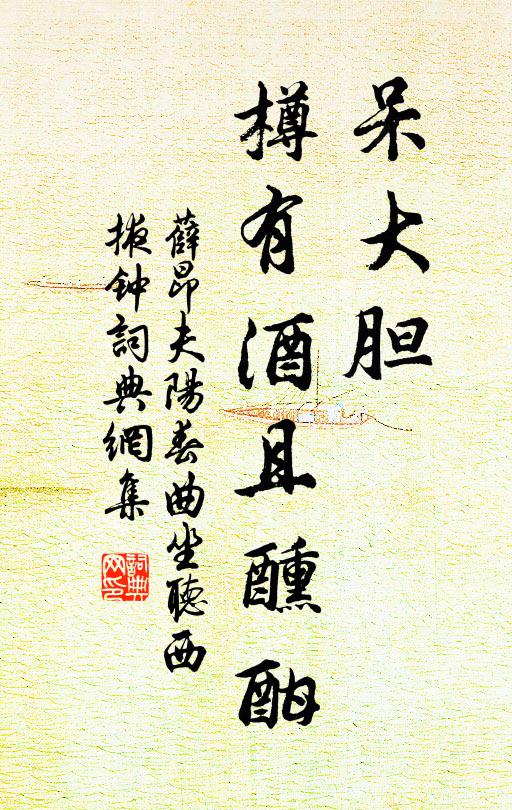 呆大胆
樽有酒且醺酣
薛昂夫陽春曲坐聽西
掖钟詞典網集
詞典网印